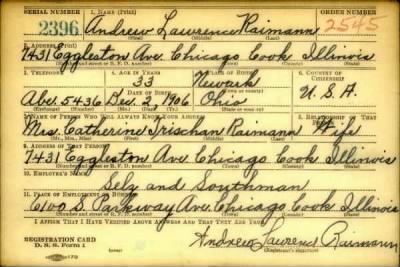 SERIAL NUMBER 1. NAME (Print) ORDER NUMBER
2396 Andrew Lawrence Raimann 2545
(First) (Middle) (Last)
2. ADDRESS (Print)
7431 Eggleston Ave. Chicago Cook Illinois
(Number and street or R. F. D. number) (Town) (County) (State)
3. TELEPHONE 4. AGE IN YEARS 5. PLACE OF BIRTH 6. COUNTRY OF CITIZENSHIP
33 Newark
DATE OF BIRTH (Town or county)
Abe. 5436 Dec. 2, 1906 Ohio U.S.A.
(Exchange) (Number) (Mo.) (Day) (Yr.) (State or country)
7. NAME OF PERSON WHO WILL ALWAYS KNOW YOUR ADDRESS 8. RELATIONSHIP OF THAT PERSON
Mrs. Catherine Trischan Raimann Wife
(Mr., Mrs., Miss) (First) (Middle) (Last)
9. ADDRESS OF THAT PERSON
7431 Eggleston Ave. Chicago Cook Illinois
(Number and street or R. F. D. number) (Town) (County) (State)
10. EMPLOYER'S NAME
Selz and Southman
11. PLACE OF EMPLOYMENT OR BUSINESS
6100 S. Parkway Ave. Chicago Cook Illinois
(Number and street or R. F. D. number) (Town) (County) (State)
I AFFIRM THAT I HAVE VERIFIED ABOVE ANSWERS AND THAT THEY ARE TRUE.
REGISTRATION CARD
D. S. S. Form 1 Andrew Lawrence Raimann
(Registrant's signature)